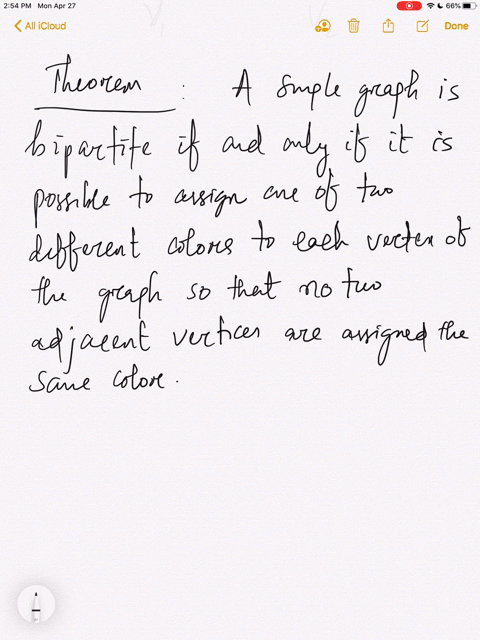 2:54 PM Mon Apr 27
66%
All iCloud
Done
Theorem : A simple graph is
bipartite if and only if it is
possible to assign one of two
different colores to each vertex of
the graph so that no two
adjacent vertices are assigned the
same colore.